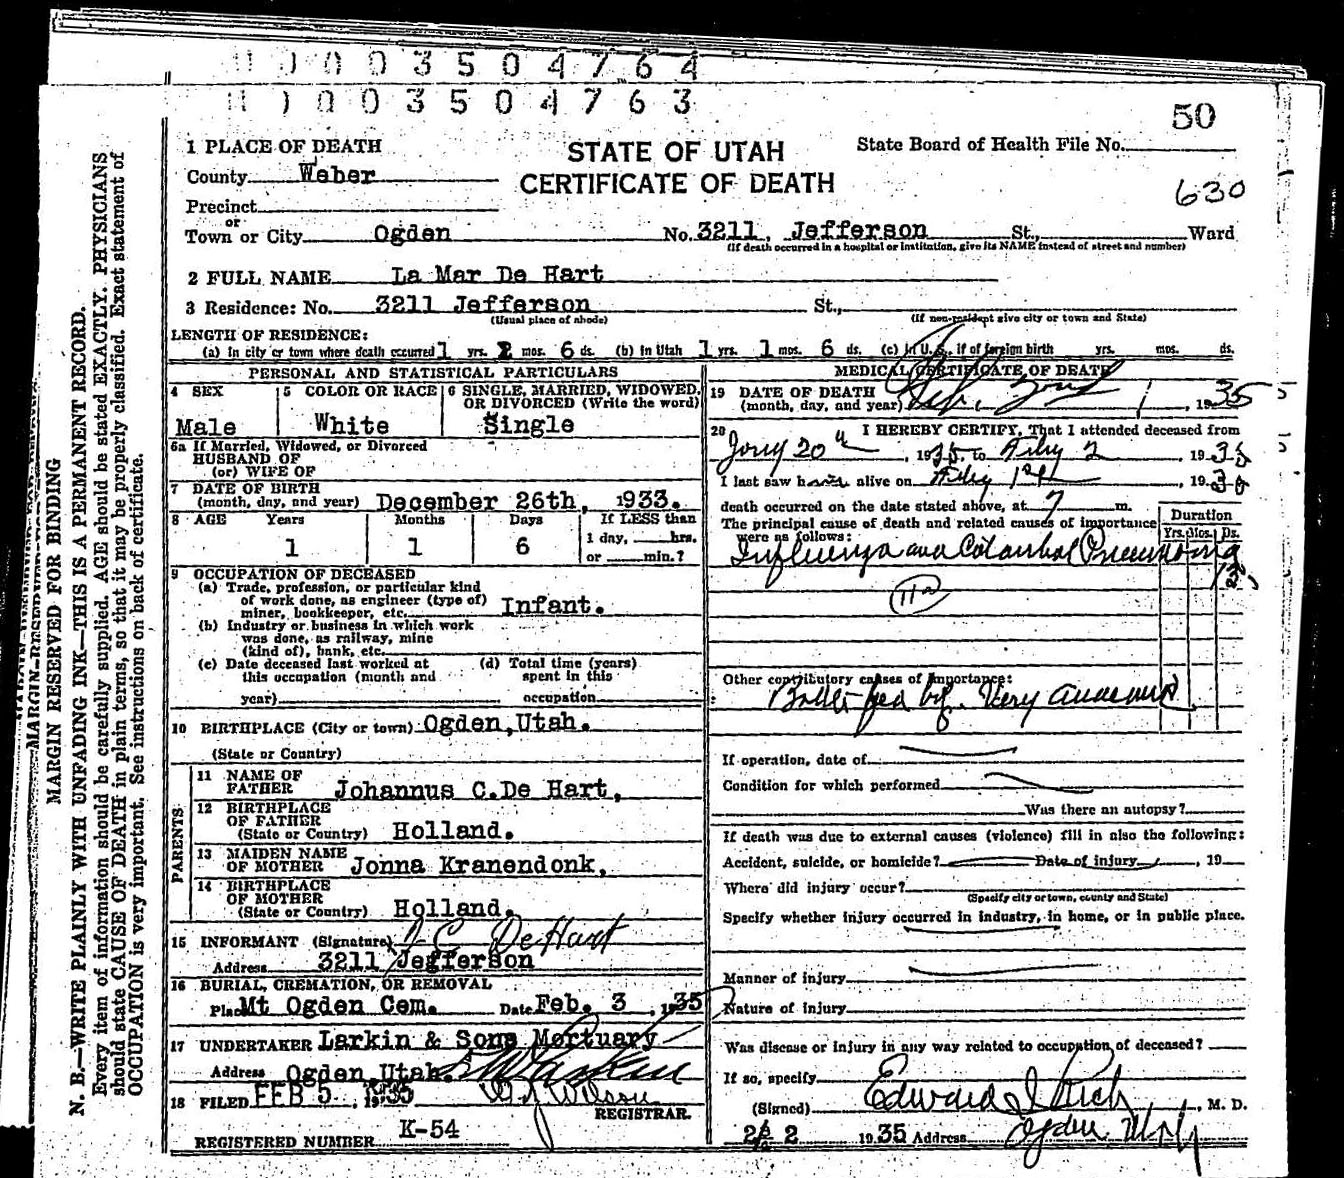 3 5 0 4 7 6 4
0 0 3 5 0 4 7 6 3
50
1 PLACE OF DEATH
STATE OF UTAH
State Board of Health File No.
County Weber
CERTIFICATE OF DEATH
630
Precinct
or
Town or City Ogden No. 3211, Jefferson St., Ward
(If death occurred in a hospital or institution, give its NAME instead of street and number)
2 FULL NAME La Mar De Hart
3 Residence: No. 3211 Jefferson St.,
(Usual place of abode) (If non-resident give city or town and State)
LENGTH OF RESIDENCE:
(a) In city or town where death occurred 1 yrs. 2 mos. 6 ds. (b) In Utah 1 yrs. 1 mos. 6 ds. (c) In U. S., if of foreign birth yrs. mos. ds.
PERSONAL AND STATISTICAL PARTICULARS
4 SEX
Male
5 COLOR OR RACE
White
6 SINGLE, MARRIED, WIDOWED, OR DIVORCED (Write the word)
Single
6a If Married, Widowed, or Divorced
HUSBAND OF
(or) WIFE OF
7 DATE OF BIRTH
(month, day, and year) December 26th, 1933.
8 AGE Years Months Days If LESS than
1 1 6 1 day, hrs.
or min.?
9 OCCUPATION OF DECEASED
(a) Trade, profession, or particular kind
of work done, as engineer (type of)
miner, bookkeeper, etc. Infant.
(b) Industry or business in which work
was done, as railway, mine
(kind of), bank, etc.
(c) Date deceased last worked at
this occupation (month and
year)
(d) Total time (years)
spent in this
occupation
10 BIRTHPLACE (City or town) Ogden, Utah.
(State or Country)
PARENTS
11 NAME OF
FATHER Johannus C. De Hart,
12 BIRTHPLACE
OF FATHER
(State or Country) Holland.
13 MAIDEN NAME
OF MOTHER Jonna Kranendonk,
14 BIRTHPLACE
OF MOTHER
(State or Country) Holland.
15 INFORMANT (Signature) J C DeHart
Address 3211 Jefferson
16 BURIAL, CREMATION, OR REMOVAL
Place Mt Ogden Cem. Date Feb. 3, 1935
17 UNDERTAKER Larkin & Sons Mortuary
Address Ogden Utah. Larkin
18 FILED FEB 5, 1935 Wilson
REGISTRAR.
REGISTERED NUMBER K-54
MEDICAL CERTIFICATE OF DEATH
19 DATE OF DEATH
(month, day, and year) Feb. 2nd, 1935
20 I HEREBY CERTIFY, That I attended deceased from
Jany 20th, 1935, to Feby 2, 1935
I last saw him alive on Feby 1st, 1935
death occurred on the date stated above, at 7 m.
The principal cause of death and related causes of importance
were as follows:
Duration
Yrs. Mos. Ds.
Influenza and Catarrhal Pneumonia
11a
Other contributory causes of importance:
Bottle fed boy. Very anaemic
If operation, date of
Condition for which performed
Was there an autopsy?
If death was due to external causes (violence) fill in also the following:
Accident, suicide, or homicide? Date of injury, 19
Where did injury occur?
(Specify city or town, county and State)
Specify whether injury occurred in industry, in home, or in public place.
Manner of injury
Nature of injury
Was disease or injury in any way related to occupation of deceased?
If so, specify
(Signed) Edward I Rich, M. D.
2/2 1935 Address Ogden Utah
MARGIN RESERVED FOR BINDING
N. B.—WRITE PLAINLY WITH UNFADING INK—THIS IS A PERMANENT RECORD.
Every item of information should be carefully supplied. AGE should be stated EXACTLY. PHYSICIANS
should state CAUSE OF DEATH in plain terms, so that it may be properly classified. Exact statement of
OCCUPATION is very important. See instructions on back of certificate.